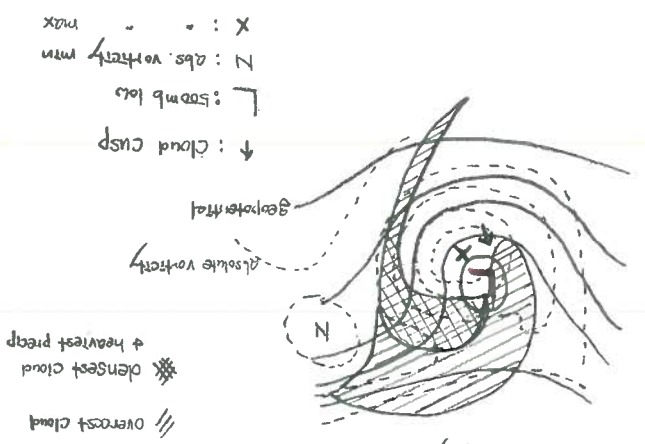 overcast cloud
densest cloud
+ heaviest precip
N
absolute vorticity
geopotential
L
X
: cloud cusp
L : 500mb low
N : abs. vorticity min
X : " " max